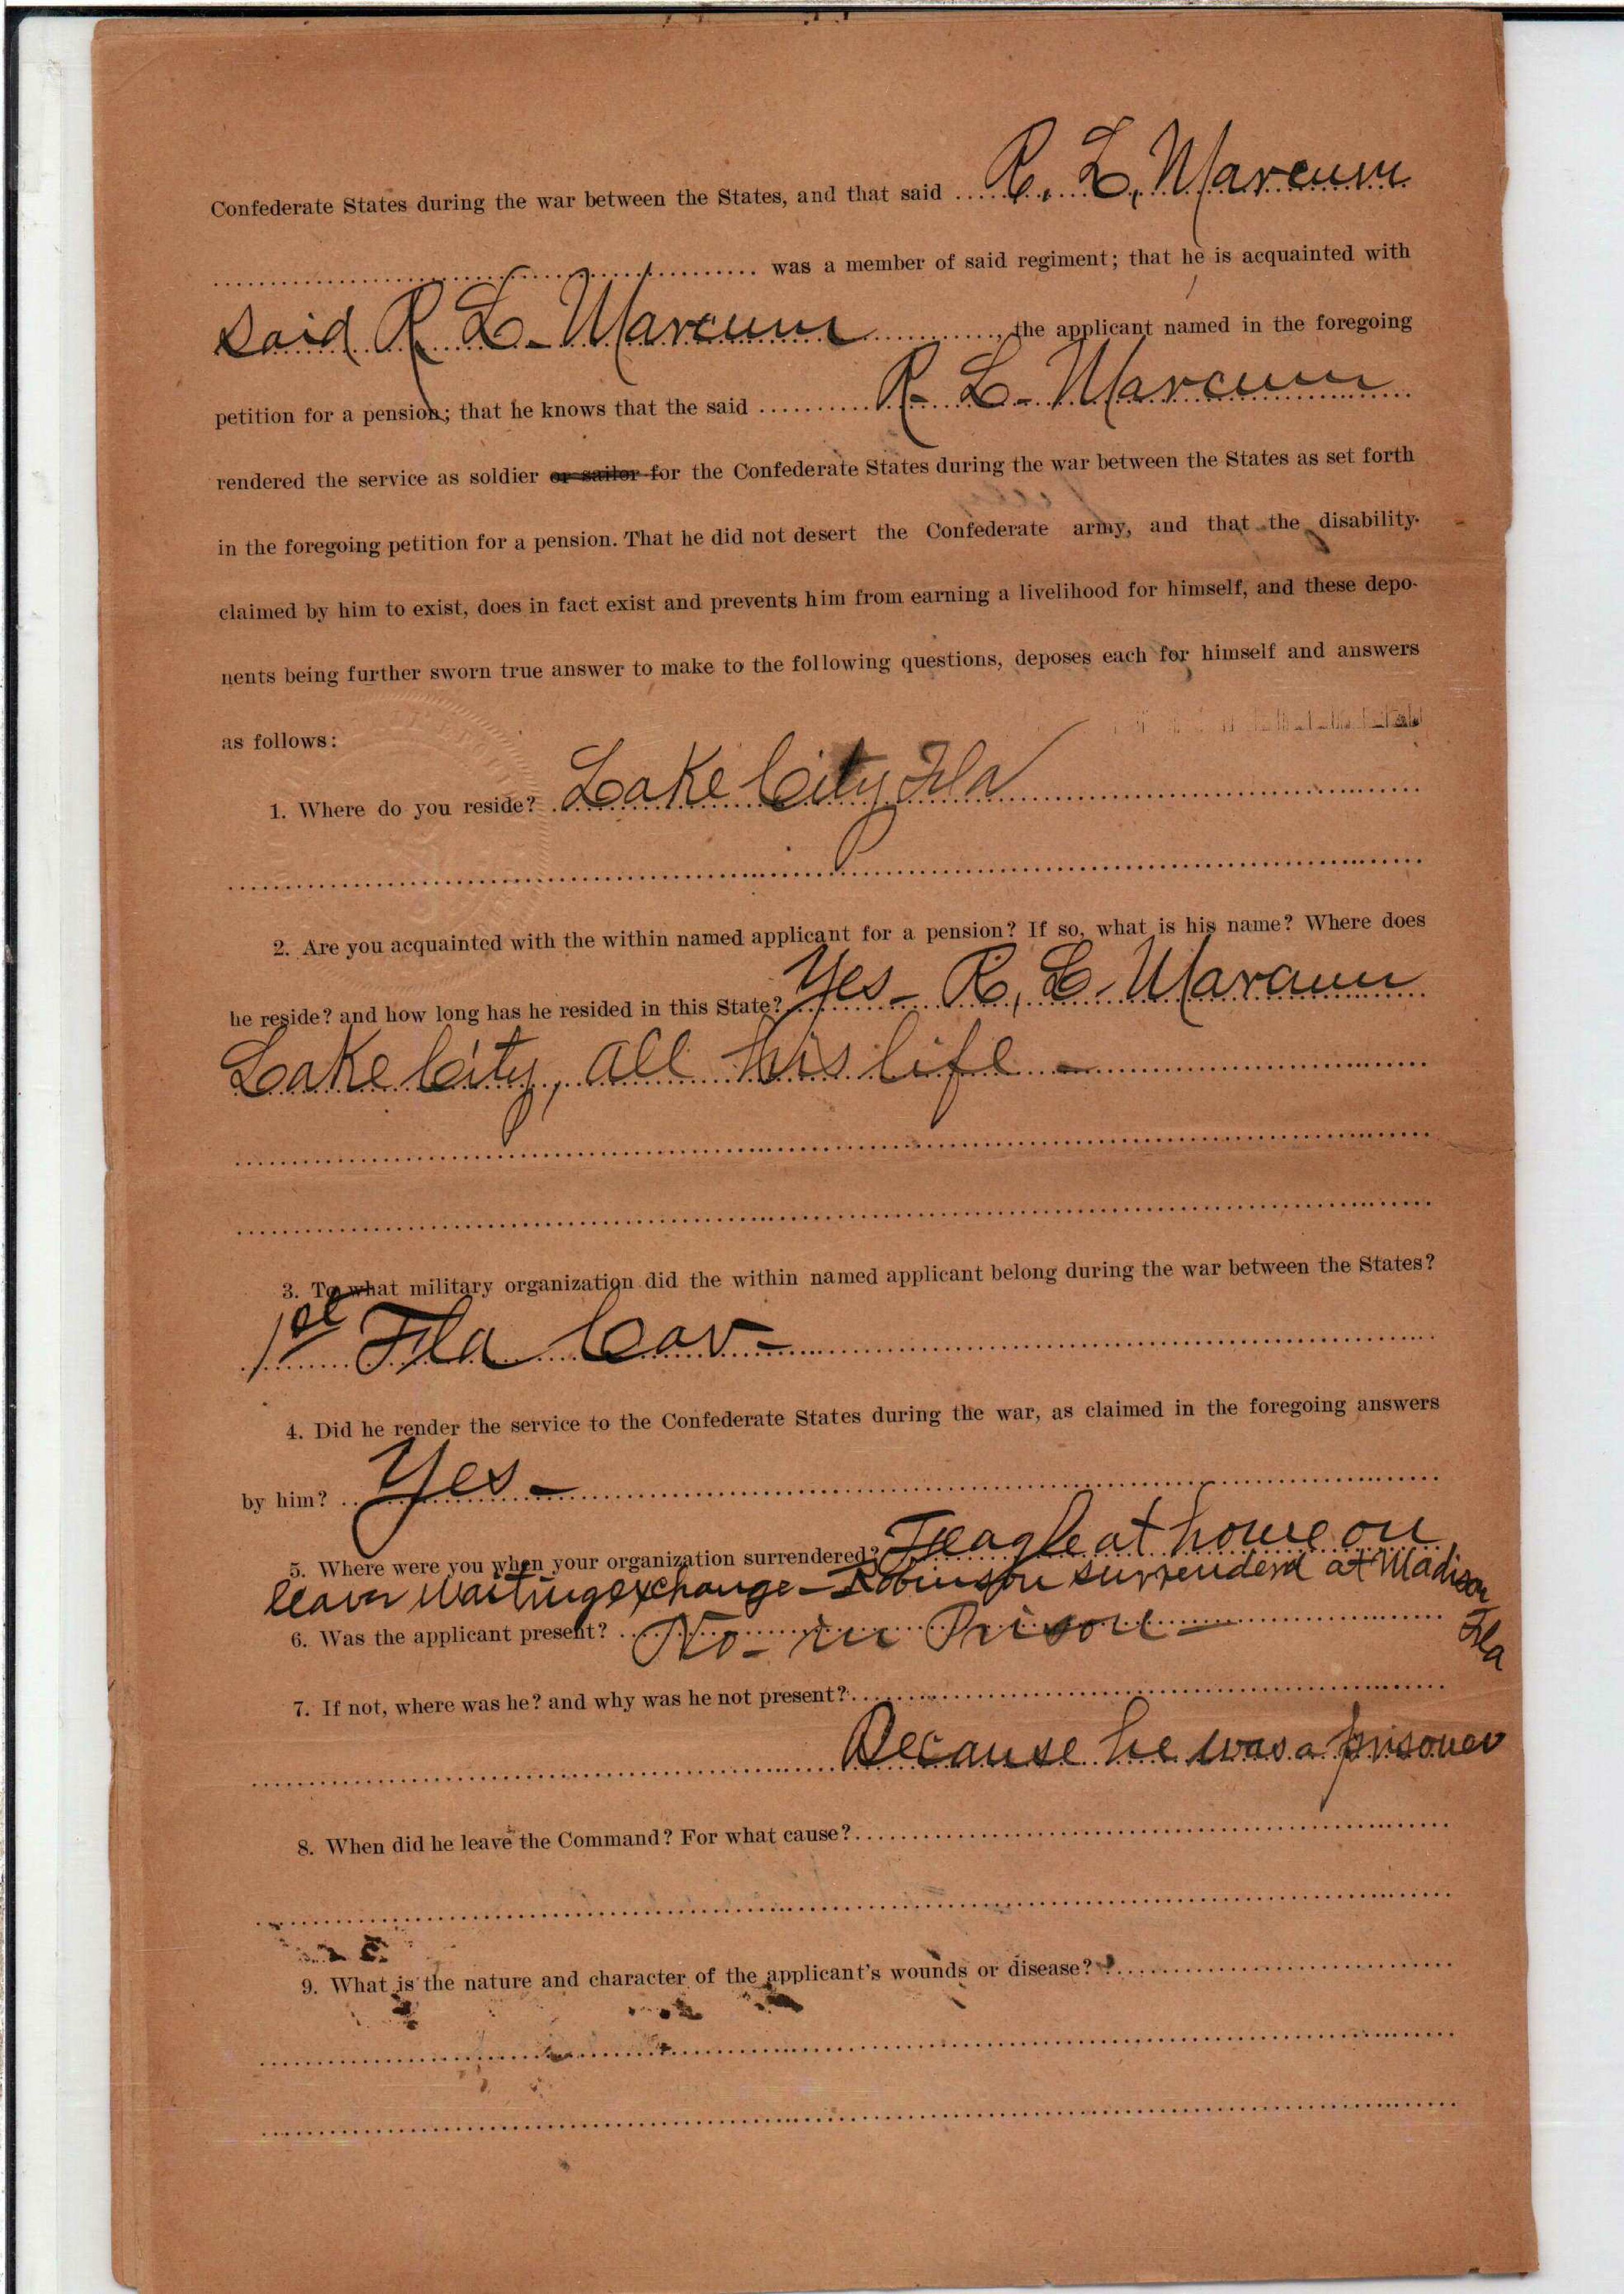 Confederate States during the war between the States, and that said R. L. Marcum
was a member of said regiment; that he is acquainted with
said R L - Marcum, the applicant named in the foregoing
petition for a pension; that he knows that the said R - L - Marcum
rendered the service as soldier or sailor for the Confederate States during the war between the States as set forth
in the foregoing petition for a pension. That he did not desert the Confederate army, and that the disability
claimed by him to exist, does in fact exist and prevents him from earning a livelihood for himself, and these depo-
nents being further sworn true answer to make to the following questions, deposes each for himself and answers
as follows:
1. Where do you reside? Lake City Fla
2. Are you acquainted with the within named applicant for a pension? If so, what is his name? Where does
he reside? and how long has he resided in this State? Yes - R, L. Marcum
Lake City, all his life -
3. To what military organization did the within named applicant belong during the war between the States?
1st Fla Cav -
4. Did he render the service to the Confederate States during the war, as claimed in the foregoing answers
by him? Yes -
5. Where were you when your organization surrendered? Feagle at home on
leave waiting exchange - Robinson surrenderd at Madison
Fla
6. Was the applicant present? No - in Prison -
7. If not, where was he? and why was he not present?
Because he was a prisoner
8. When did he leave the Command? For what cause?
9. What is the nature and character of the applicant's wounds or disease?